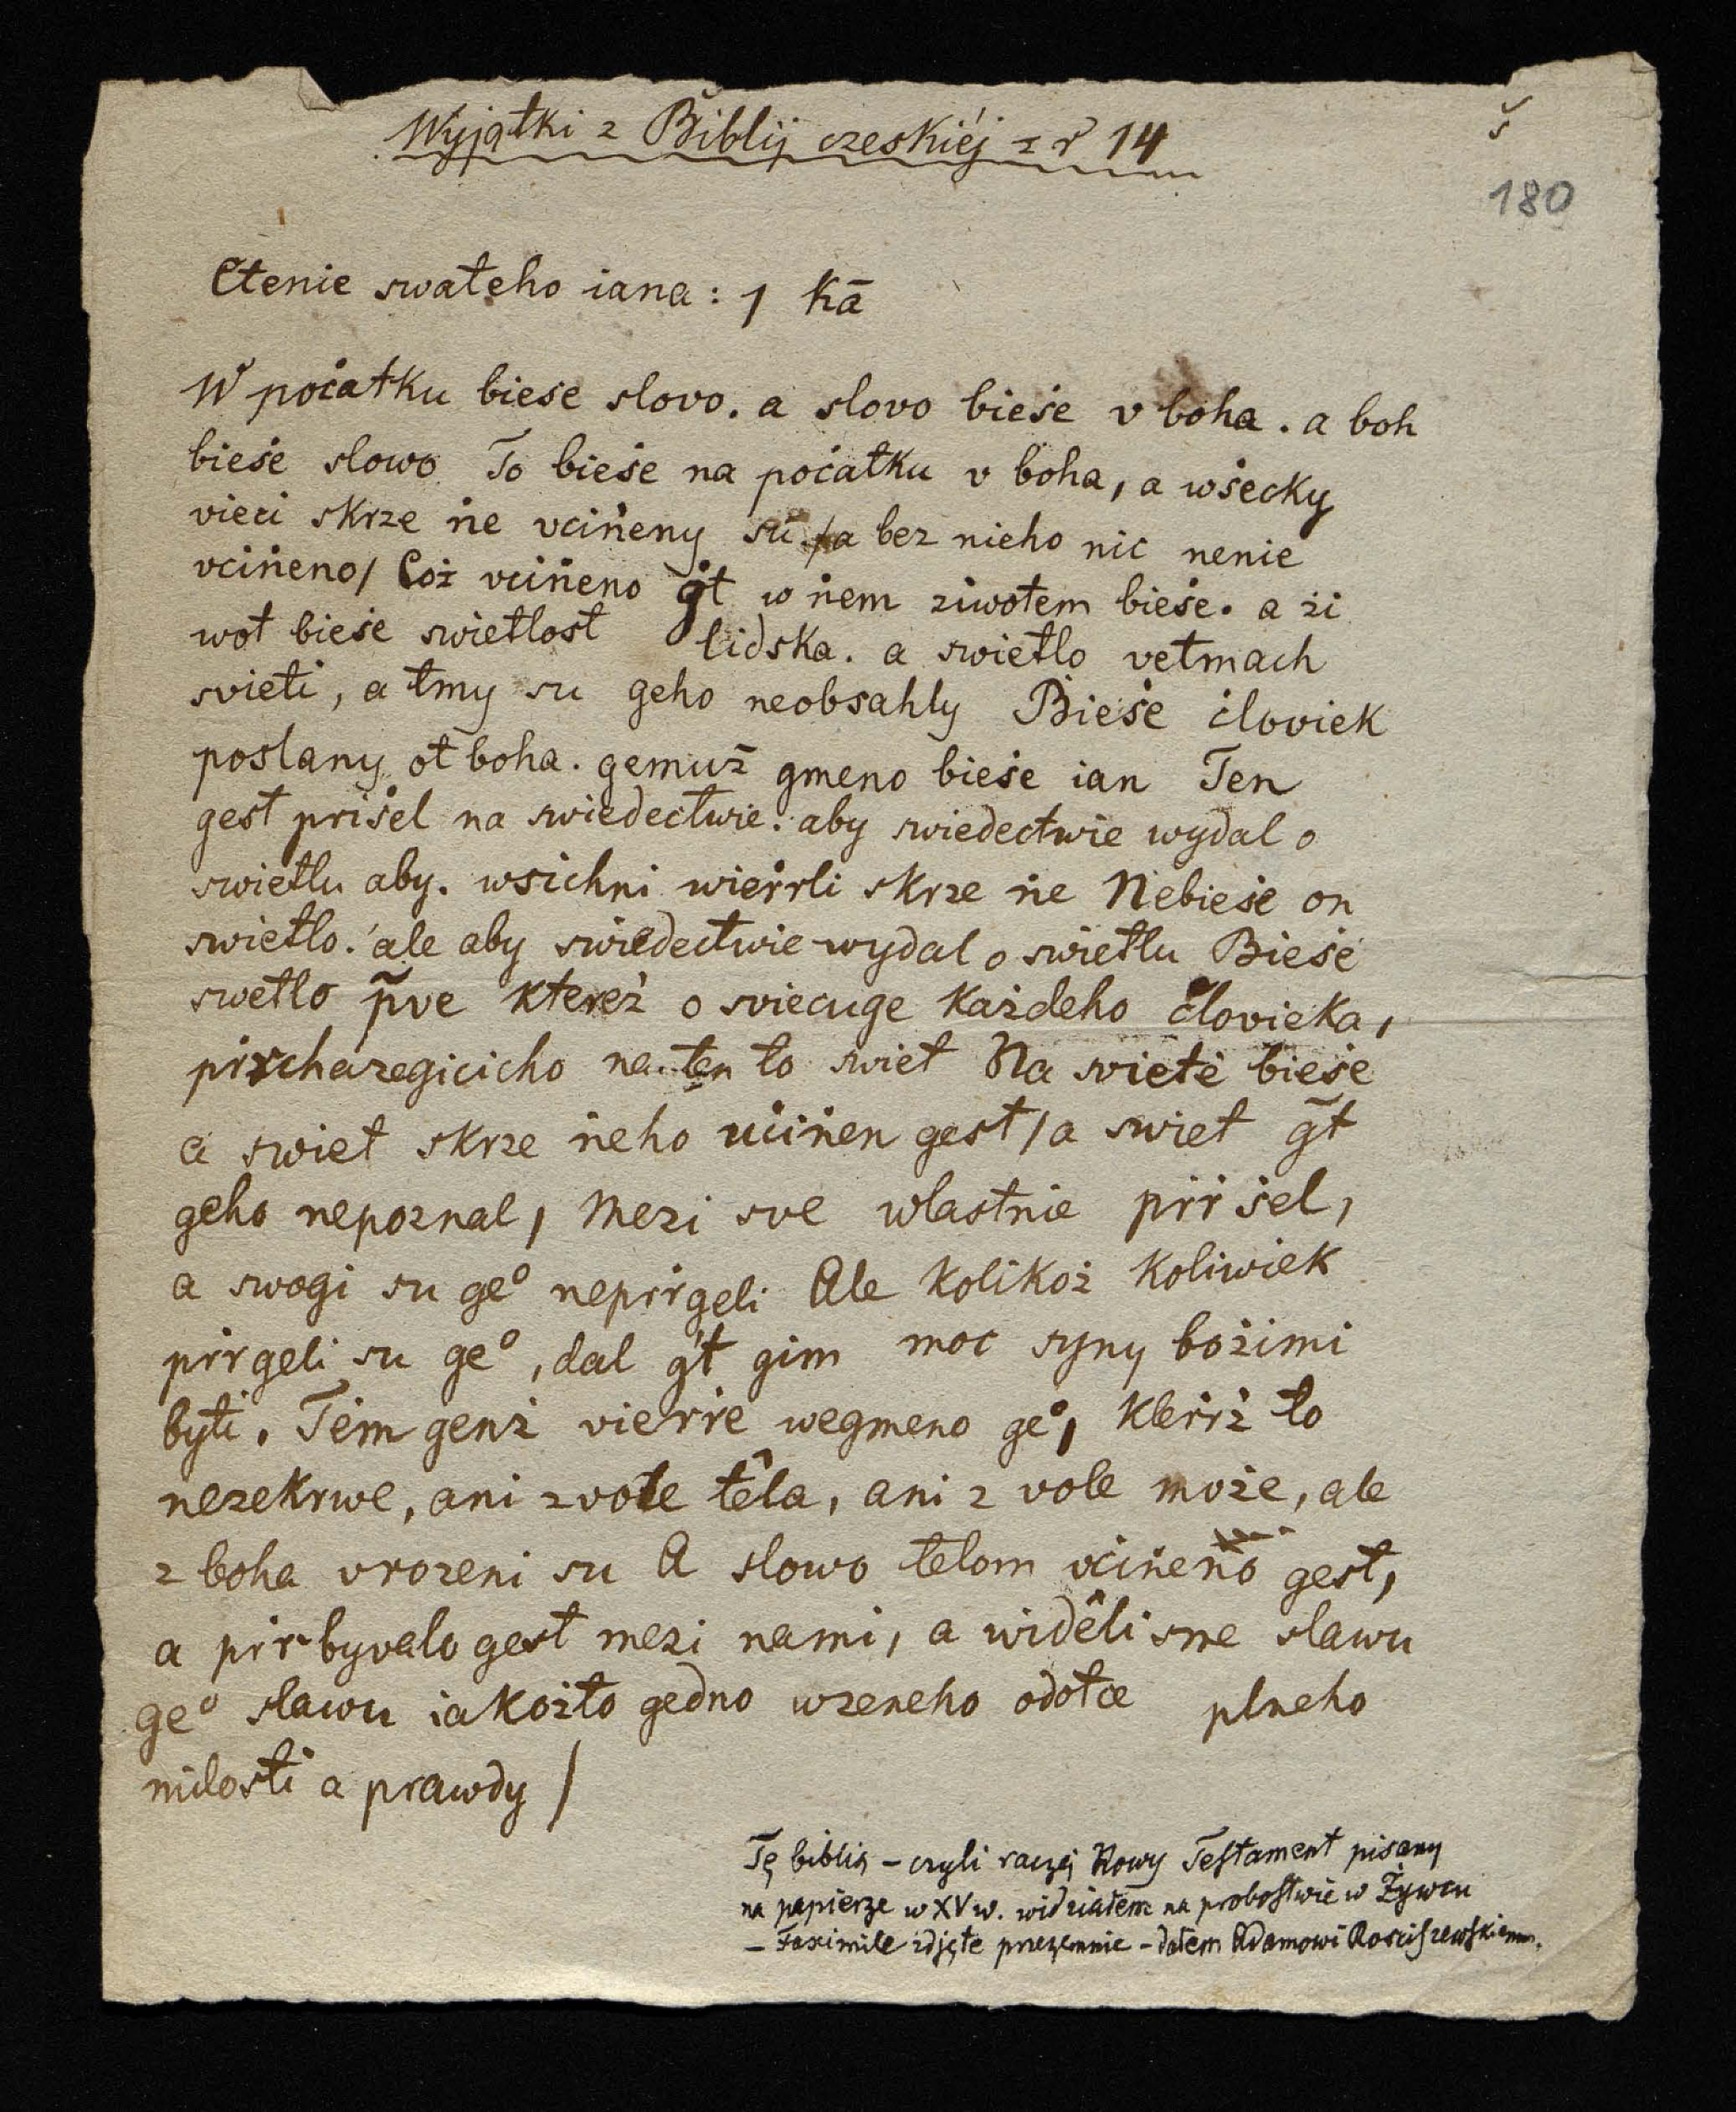 Wyjątki z Biblij czeskiéj z r 14
š
180
Čtenie swateho iana: 1 kā
W počatku biese slovo. a slovo bieṡe v boha. a boh
bieṡe slowo To bieṡe na poċatku v boha, a wṡecky
vieci skrze ṅe vciṅeny su / a bez nieho nic nenie
vciṅeno / Coż vciṅeno g̃t w ṅem ziwotem bieṡe. a żi
wot bieṡe swietlost lidska. a swietlo vetmach
svieti, a tmy su geho neobsahly Bieṡe ċloviek
poslany ot boha. gemuż gmeno bieṡe ian Ten
gest priṡel na swiedectwie. aby swiedectwie wydal o
swietlu aby. wsichni wieṙrli skrze ṅe Nebieṡe on
swietlo. ale aby swiedectwie wydal o swietlu Bieṡe
swetlo p̃ve ktereż o sviecuge każdeho človieka,
pirchazegicicho na ten to swiet Na svietė bieṡe
a swiet skrze ṅeho uċiṅen gest / a swiet g̃t
geho nepoznal, Mezi sve wlastnie pirṡel,
a swogi su ge° nepirgeli Ale kolikoż koliwiek
pirgeli su ge°, dal g̃t gim moc syny bożimi
byti. Tėm genż vierṙe wegmeno ge°, kteriż to
nezekrwe, ani z vole têla, ani z vole może, ale
z boha vrozeni su A slowo telom vċiṅeno gest,
a pirbyvalo gest mezi nami, a widêli sme slawu
ge° slawu iakożto gedno wzeneho odotce plneho
milosti a prawdy /
Tę biblią – czyli raczej Nowy Testament pisany
na papierze w XV w. widziałem na probostwie w Żywcu
– Faximile zdjęte przezemnie – dałem Adamowi Rościszewskiemu.